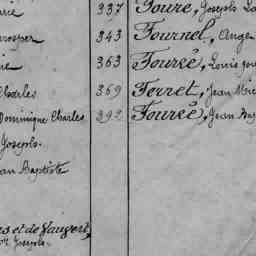 337 Foure, Joseph
rosper 343 Fournel, Ange
ie 363 Fourée, Louis
Charles 369 Forret, Jean
Dominique Charles 392 Fourée, Jean
Joseph.
an Baptiste
et de Faugert,
Joseph.